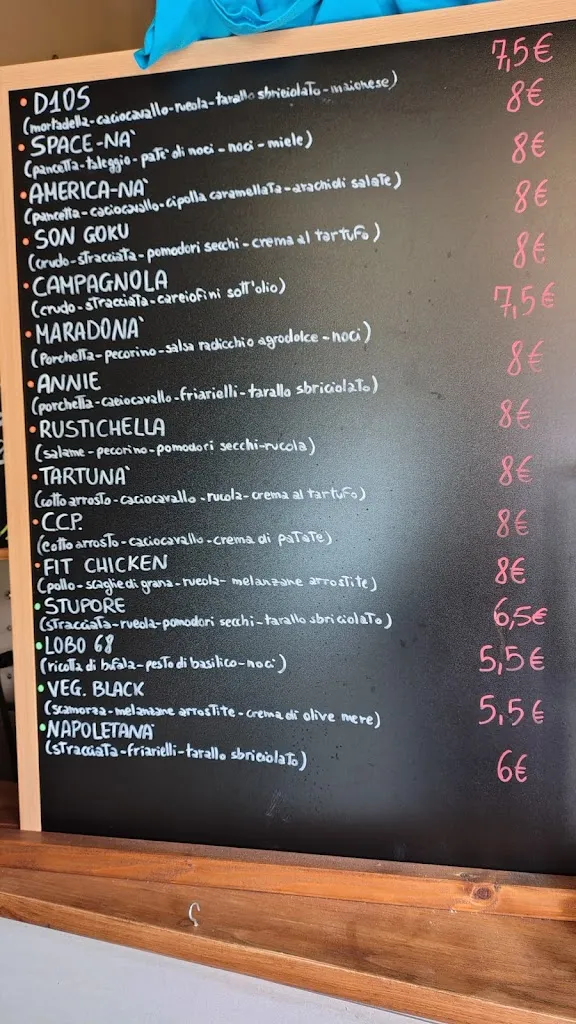 • D10S 7,5€
(mortadella-caciocavallo-rucola-tarallo sbriciolato-maionese)
• SPACE-NA' 8€
(pancetta-taleggio-patè di noci-noci-miele)
• AMERICA-NA' 8€
(pancetta-caciocavallo-cipolla caramellata-arachidi salate)
• SON GOKU 8€
(crudo-stracciata-pomodori secchi-crema al tartufo)
• CAMPAGNOLA 8€
(crudo-stracciata-carciofini sott'olio)
• MARADONA' 7,5€
(Porchetta-pecorino-salsa radicchio agrodolce-noci)
• ANNIE 8€
(porchetta-caciocavallo-friarielli-tarallo sbriciolato)
• RUSTICHELLA 8€
(salame-pecorino-pomodori secchi-rucola)
• TARTUNA' 8€
(cotto arrosto-caciocavallo-rucola-crema al tartufo)
• C.C.P. 8€
(cotto arrosto-caciocavallo-crema di patate)
• FIT CHICKEN 8€
(pollo-scaglie di grana-rucola-melanzane arrostite)
• STUPORE 6,5€
(stracciata-rucola-pomodori secchi-tarallo sbriciolato)
• LOBO 68 5,5€
(ricotta di bufala-pesto di basilico-noci)
• VEG. BLACK 5,5€
(scamorza-melanzane arrostite-crema di olive nere)
• NAPOLETANA' 6€
(stracciata-friarielli-tarallo sbriciolato)